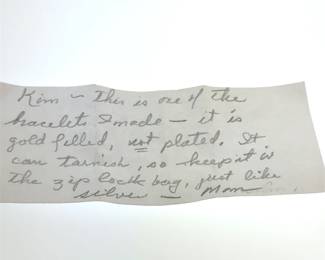 Kim - this is one of the
bracelets I made - it is
gold filled, not plated. It
can tarnish, so keep it in
the zip lock bag, just like
silver - Mom